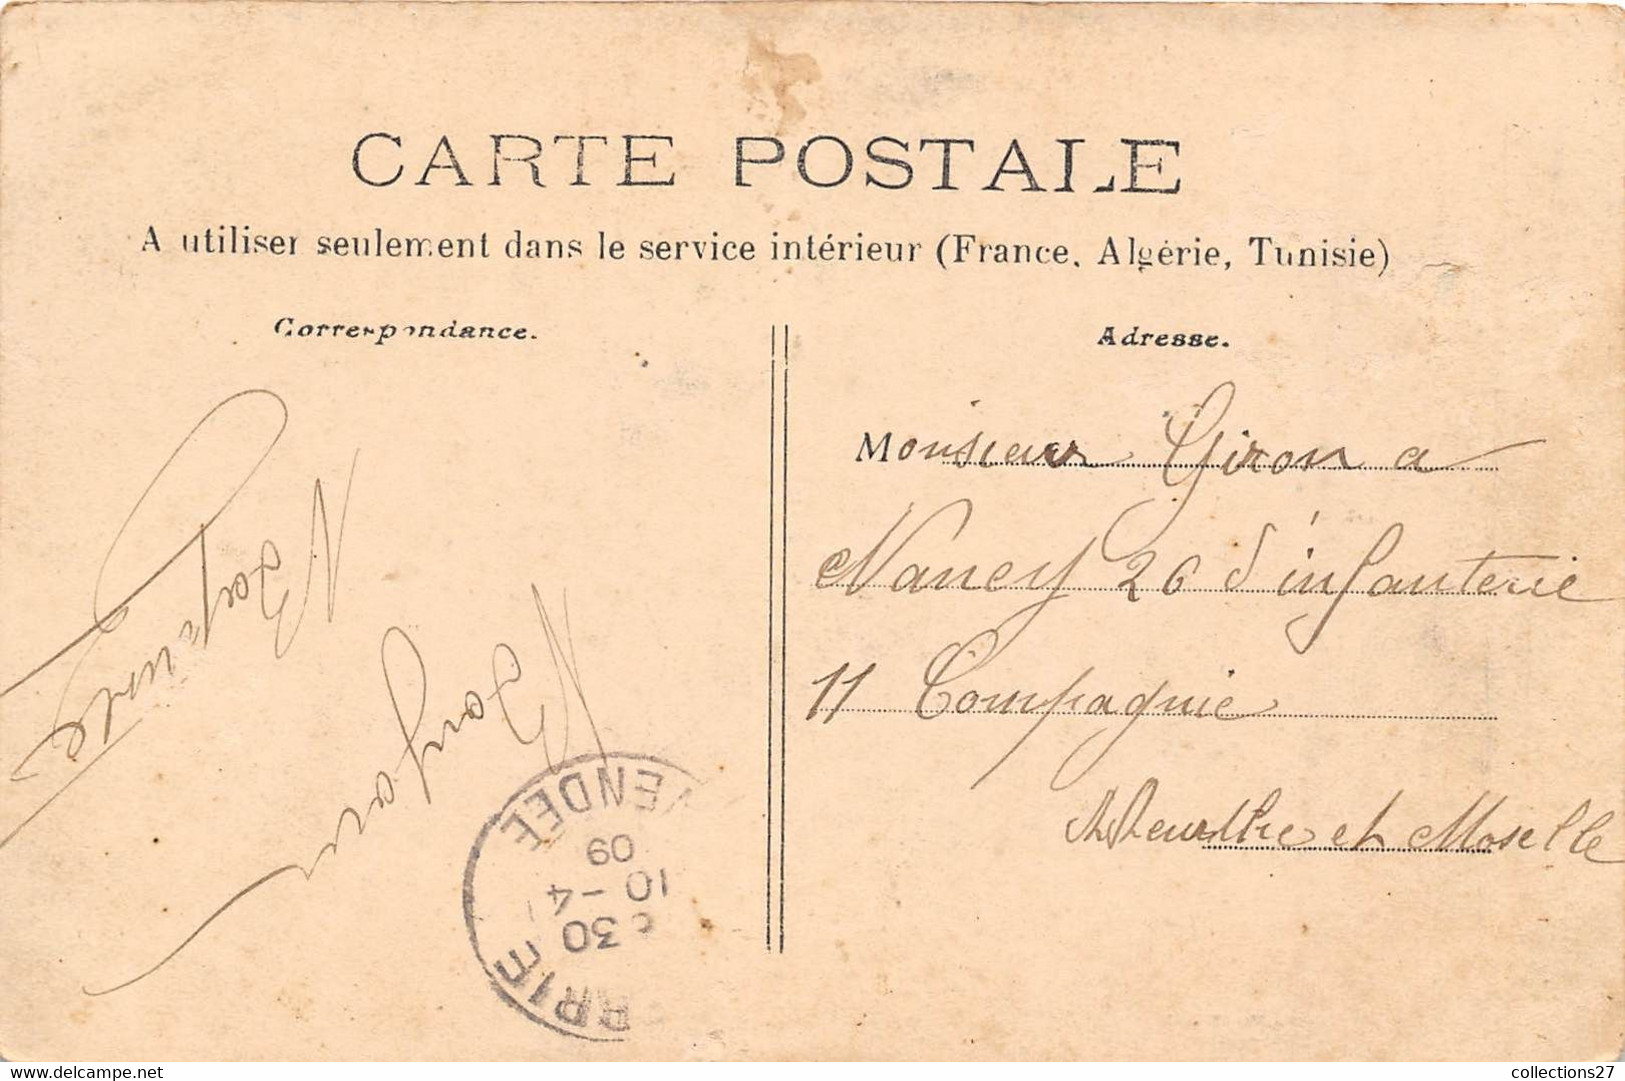 CARTE POSTALE
A utiliser seulement dans le service intérieur (France, Algérie, Tunisie)
Correspondance.
Adresse.
Monsieur Giron a
Nancy 26 d'infanterie
11 Compagnie
Meurthe et Moselle
VENDÉE
09
10 - 4
30
RRIE
www.delcampe.net
collections27